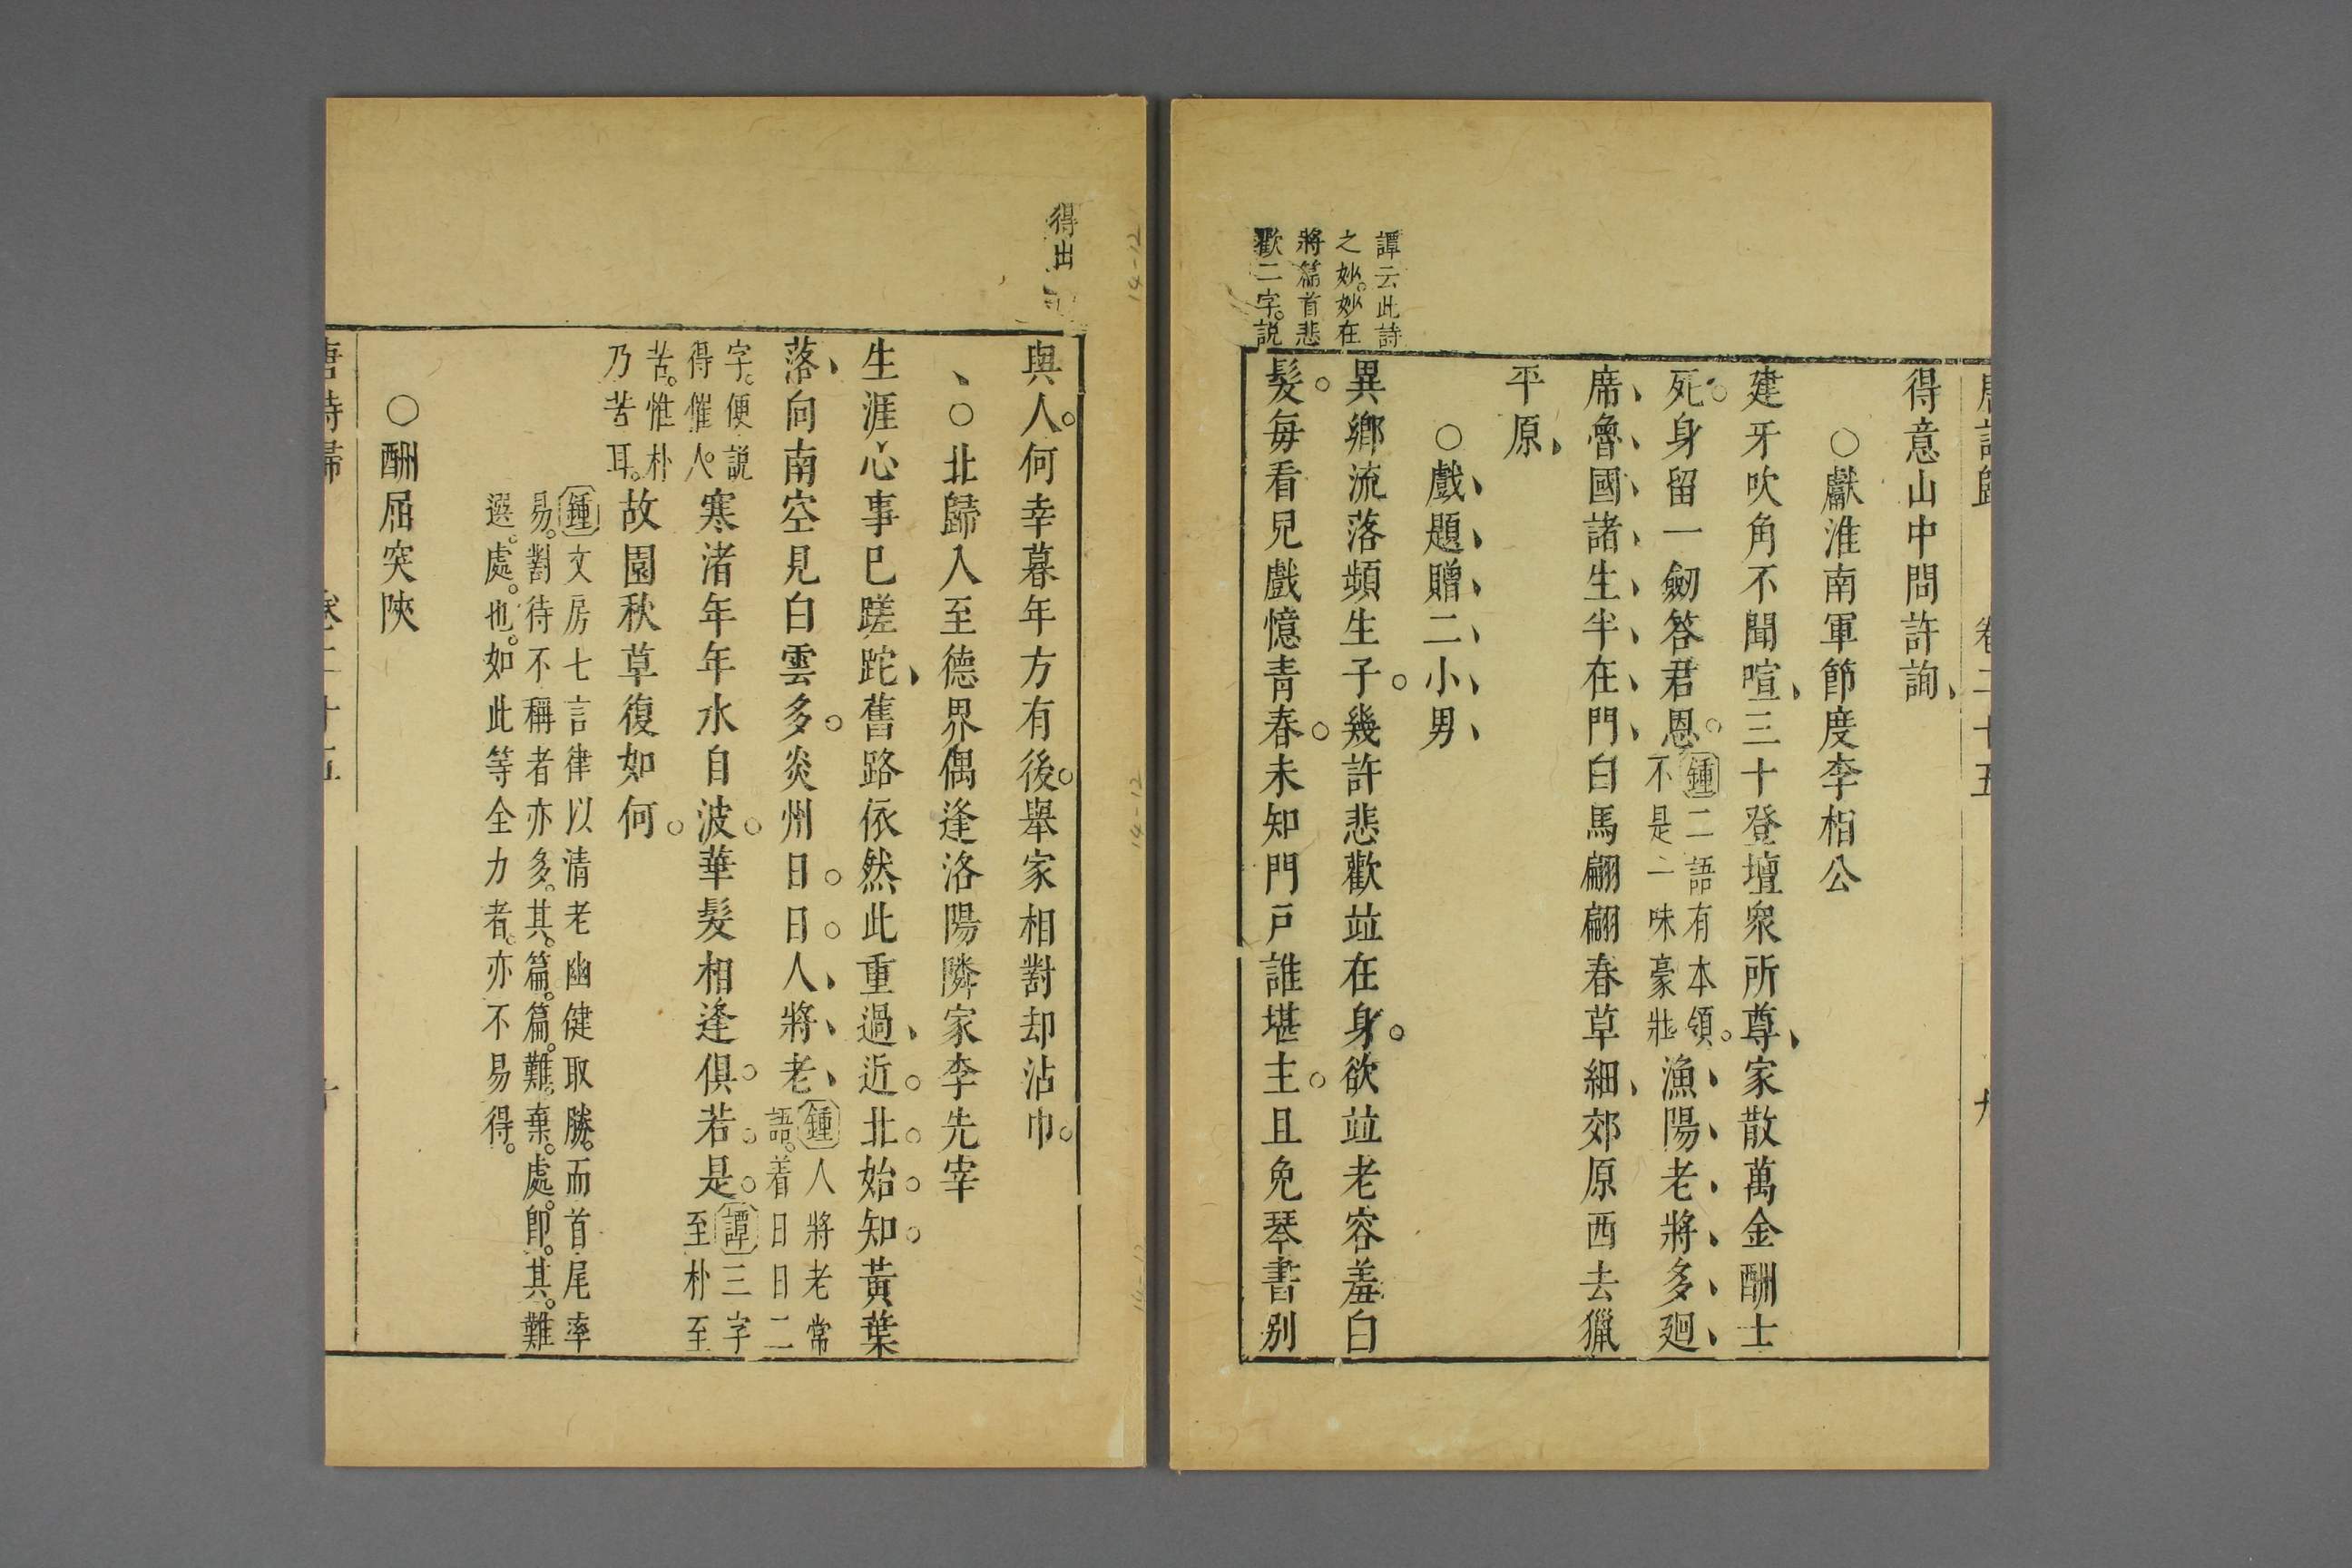 得意山中問許詢
○獻淮南軍節度李相公
建牙吹角不聞喧三十登壇衆所尊家散萬金酬士
死身留一劒答君恩
鍾二語有本領
不是一味豪壯
漁陽老將多廻
席魯國諸生半在門白馬翩翩春草細郊原西去獵
平原
○戲題贈二小男
譚云此詩
之妙妙在
將篇首悲
歡二字說
異鄉流落頻生子幾許悲歡竝在身欲竝老容羞白
髮每看兒戲憶青春未知門戸誰堪主且免琴書别
得出
與人何幸暮年方有後舉家相對却沾巾
○北歸入至德界偶逢洛陽隣家李先宰
生涯心事已蹉跎舊路依然此重過近北始知黃葉
落向南空見白雲多炎州日日人將老
鍾人將老常
語着日日二
字便說
得催人
寒渚年年水自波華髮相逢俱若是
譚三字
至朴至
苦惟朴
乃苦耳
故園秋草復如何
鍾文房七言律以清老幽健取勝而首尾率
易對待不稱者亦多其篇篇難棄處即其難
選處也如此等全力者亦不易得
○酬屈突陝